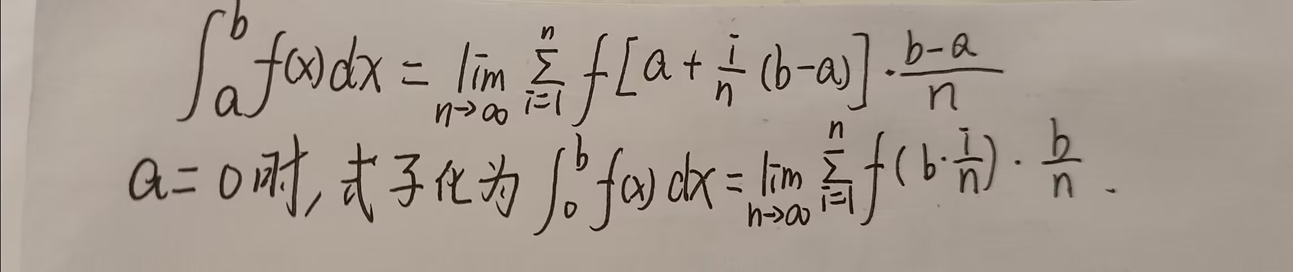 ∫_a^b f(x)dx = lim_{n→∞} Σ_{i=1}^n f[a + i/n (b-a)]·(b-a)/n
a=0时,式子化为 ∫_0^b f(x)dx = lim_{n→∞} Σ_{i=1}^n f(b·i/n)·b/n.